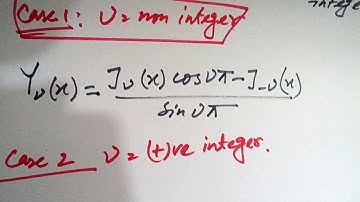 Case 1: υ = non integer
intege
Y_υ(x) = (J_υ(x) cos υπ - J_-υ(x)) / sin υπ
Case 2 υ = (+)ve integer.